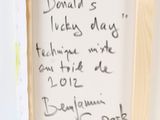 Donald's
lucky day"
technique mixte
sur toile de
2012
Benjamin
Spark